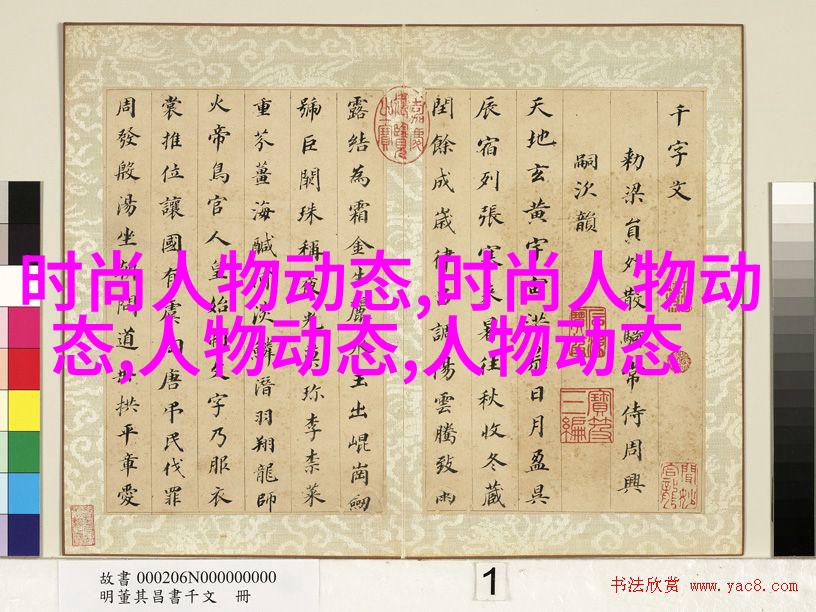 时尚人物动态,时尚人物动
态,人物动态,人物动态
千字文
勅梁員外散騎常侍周興
嗣次韻
天地玄黃宇宙洪荒日月盈昃
辰宿列張寒来暑往秋收冬藏
閏餘成歲律呂調陽雲騰致雨
露結為霜金生麗水玉出崐崗劒
號巨闕珠稱夜光菓珍李柰菜
重芥薑海醎河淡鱗潛羽翔龍師
火帝鳥官人皇始制文字乃服衣
裳推位讓國有虞陶唐弔民伐罪
周發殷湯坐朝問道垂拱平章愛
嘉慶御覽之寶
寶笈三編
故書 000206N000000000
明董其昌書千文 冊
1
书法欣赏 www.yac8.com